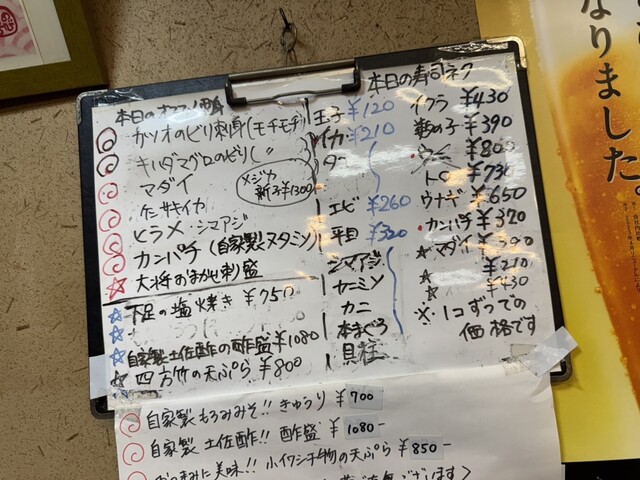 本日のオススメ
カツオのビリ刺身(モチモチ)
キハダマグロのビリ(〃
マダイ
メジカ
新子¥1300
ケンサキイカ
ヒラメ・シマアジ
カンパチ(自家製
大将のおまかせ刺盛
下足の塩焼き ¥750
自家製土佐酢の酢盛¥1080
四方竹の天ぷら ¥800
玉子 ¥120
イカ ¥210
エビ ¥260
平目 ¥320
シマアジ
サーモン
カニ
本まぐろ
貝柱
本日の寿司ネタ
イクラ ¥430
¥390
ウニ ¥800
トロ ¥730
ウナギ ¥650
カンパチ ¥370
マダイ
¥210
¥430
※1コずつでの
価格です
自家製もろみみそ!! きゅうり ¥700
自家製 土佐酢!! 酢盛 ¥1080-
美味!! 小イワシ干物の天ぷら ¥850-
ございます
なりました